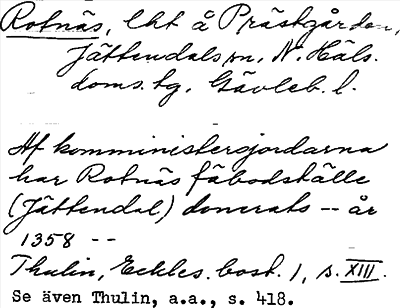 Rotnäs, lht å Prästgården,
Jättendals sn. N. Häls.
doms. tg. Gävleb. l.
Af komministergjordarna
har Rotnäs fäbodställe
(Jättendal) donerats -- år
1358 --
Thulin, Eckles. bost. 1, s. XIII.
Se även Thulin, a.a., s. 418.